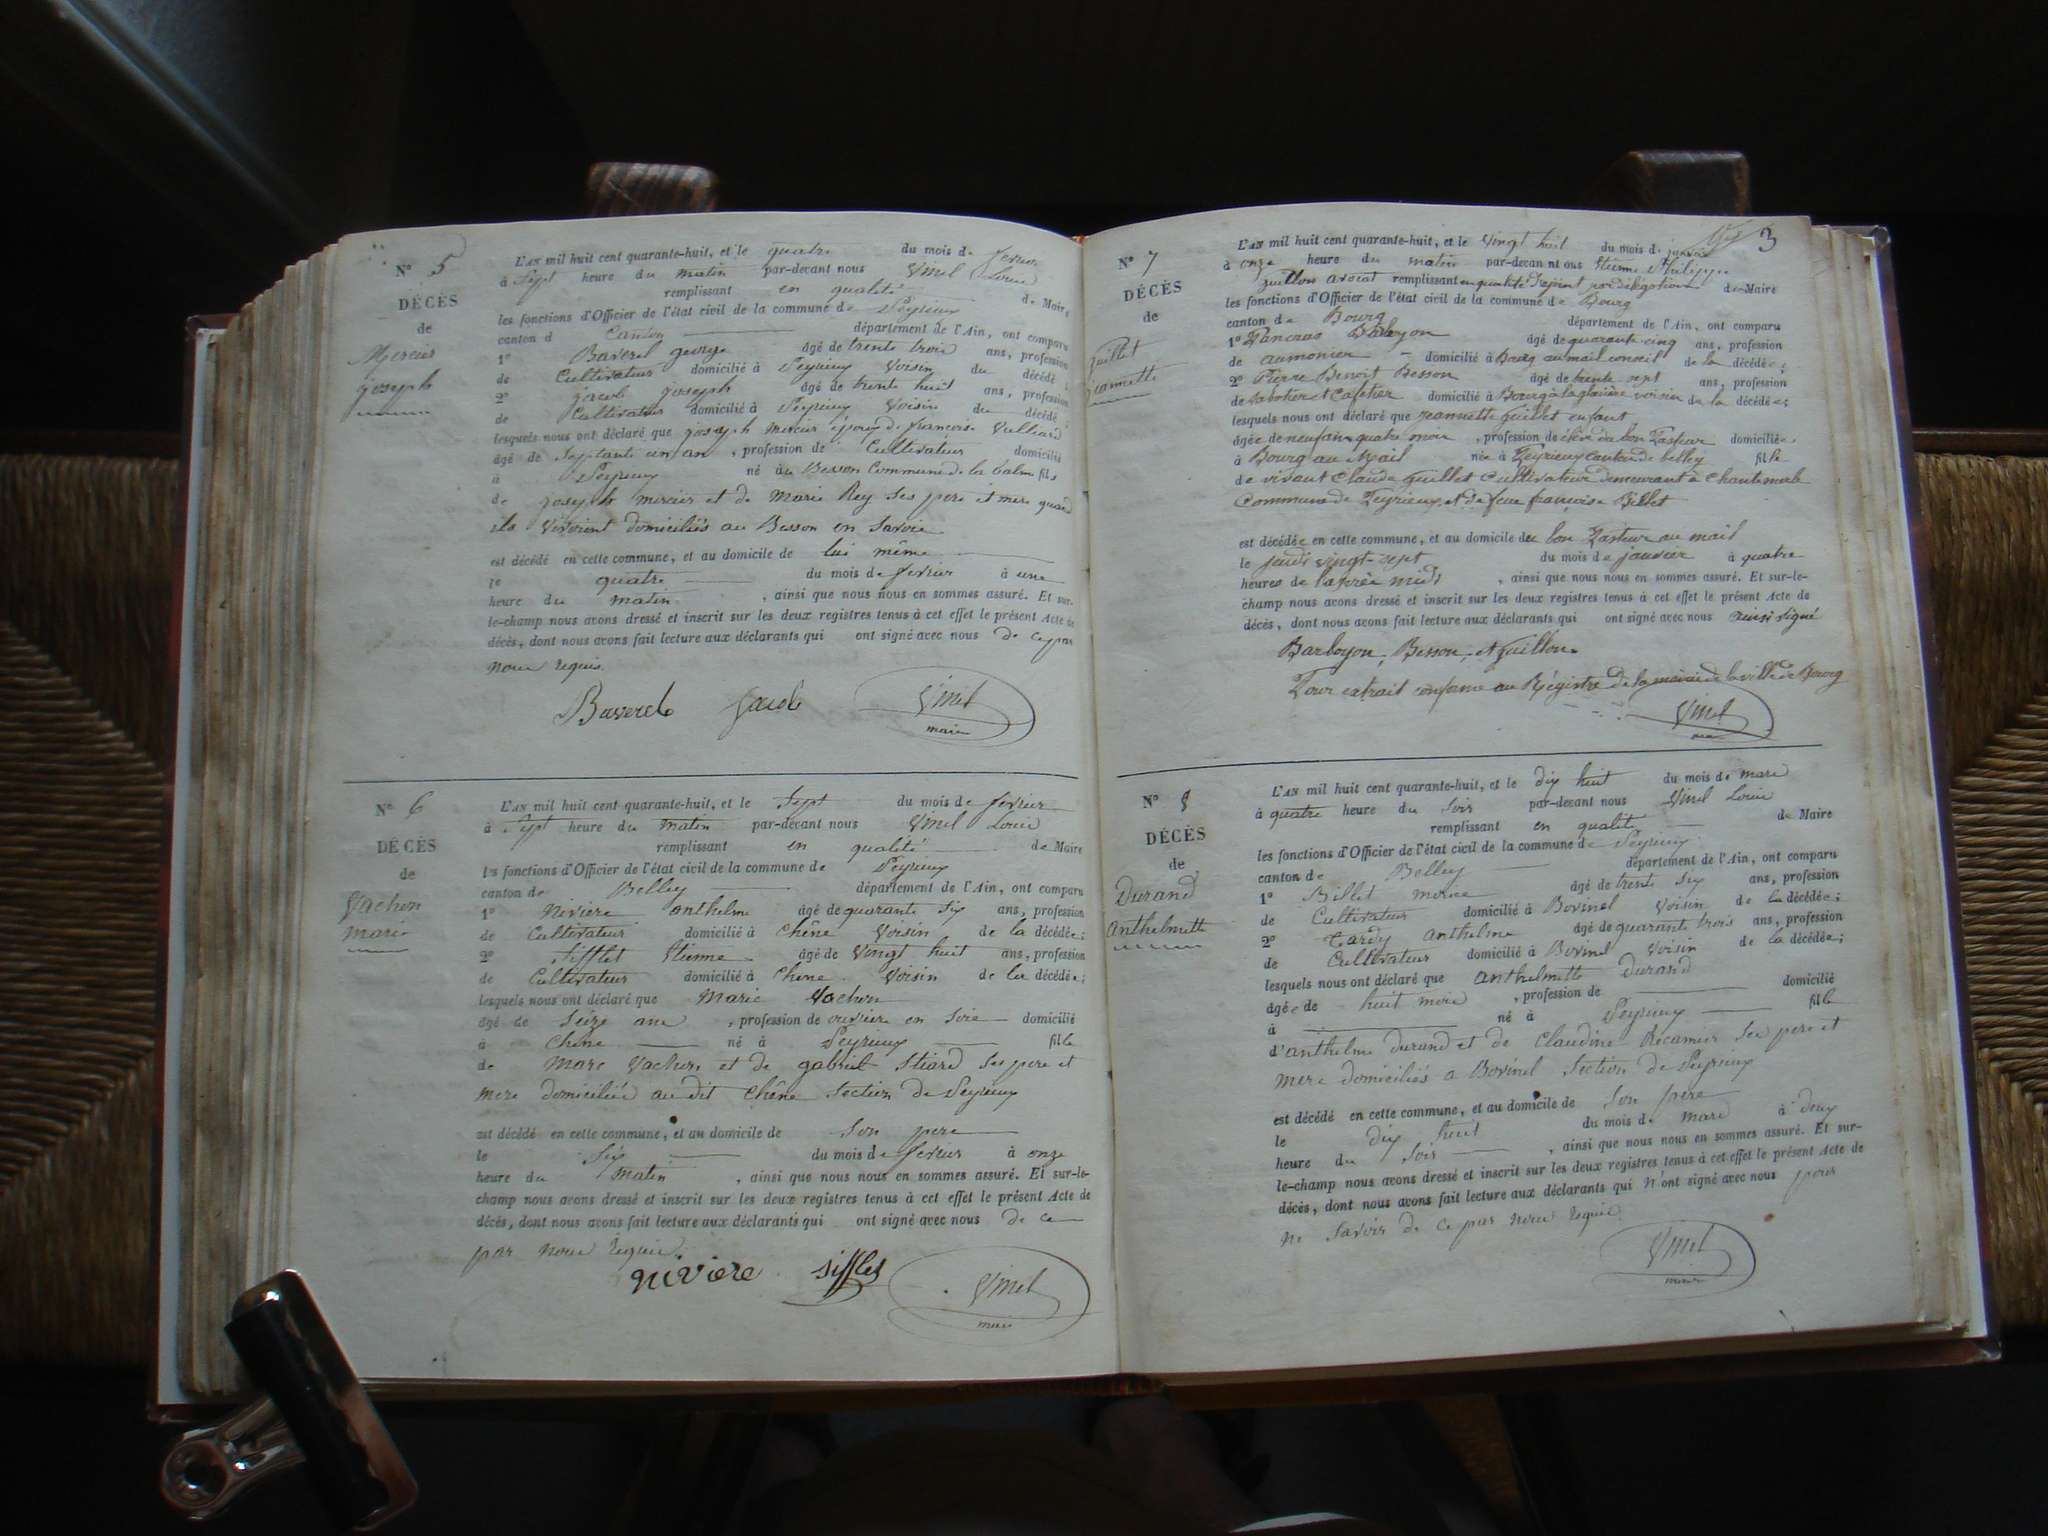 N° 5
DÉCÈS
de
Mercier
joseph
L'AN mil huit cent quarante-huit, et le quatre du mois de fevrier
à Sept heure du matin par-devant nous Vinel Louis
remplissant en qualité de Maire
les fonctions d'Officier de l'état civil de la commune de Peyrieux
canton d Canton département de l'Ain, ont comparu
1° Baverel george âgé de trente trois ans, profession
de Cultivateur domicilié à Peyrieux Voisin du décédé ;
2° jacob joseph âgé de trente huit ans, profession
de Cultivateur domicilié à Peyrieux Voisin du décédé ;
lesquels nous ont déclaré que joseph mercier epoux de francoise Vulliard
âgé de Septante un an , profession de Cultivateur domicilié
à Peyrieux né au Besson Commune de la balme fils
de joseph mercier et de Marie Rey Ses pere et mere quand
ils Vivoient domiciliés au Besson en Savoie
est décédé en cette commune, et au domicile de lui même
le quatre du mois de fevrier à une
heure du matin , ainsi que nous nous en sommes assuré. Et sur-
le-champ nous avons dressé et inscrit sur les deux registres tenus à cet effet le présent Acte de
décès, dont nous avons fait lecture aux déclarants qui ont signé avec nous de ce par
nous requis.
Baverel Jacob Vinel
maire
N° 6
DÉCÈS
de
Vachon
marie
L'AN mil huit cent quarante-huit, et le Sept du mois de fevrier
à Sept heure du matin par-devant nous Vinel Louis
remplissant en qualité de Maire
les fonctions d'Officier de l'état civil de la commune de Peyrieux
canton de Belley département de l'Ain, ont comparu
1° Niviere anthelme âgé de quarante six ans, profession
de Cultivateur domicilié à Chêne Voisin de la décédée ;
2° Sifflet Etienne âgé de Vingt huit ans, profession
de Cultivateur domicilié à Chêne Voisin de la décédée ;
lesquels nous ont déclaré que Marie Vachon
âgé de Seize ans , profession de ouvriere en Soie domicilié
à Chêne né à Peyrieux fille
de Marc Vachon et de gabriel Ses pere et
mere domiciliés au dit Chêne Section de Peyrieux
est décédé en cette commune, et au domicile de Son pere
le Six du mois de fevrier à onze
heure du matin , ainsi que nous nous en sommes assuré. Et sur-le-
champ nous avons dressé et inscrit sur les deux registres tenus à cet effet le présent Acte de
décès, dont nous avons fait lecture aux déclarants qui ont signé avec nous de ce
par nous requis.
niviere sifflet Vinel
maire
3
N° 7
DÉCÈS
de
guillet
jeannette
L'AN mil huit cent quarante-huit, et le Vingt huit du mois de janvier
à onze heure du matin par-devant nous Etienne Philippe
guillon avocat remplissant en qualité d'adjoint par délégation de Maire
les fonctions d'Officier de l'état civil de la commune de Bourg
canton de Bourg département de l'Ain, ont comparu
1° Pancrace Barboyon âgé de quarante cinq ans, profession
de aumonier domicilié à Bourg au mail conseil de la décédée ;
2° Pierre Benoit Besson âgé de trente sept ans, profession
de Sabotier et Cafetier domicilié à Bourg à la glacière voisin de la décédée ;
lesquels nous ont déclaré que jeannette guillet enfant
âgée de neuf ans quatre mois , profession de élève du bon Pasteur domiciliée
à Bourg au Mail née à Peyrieux canton de belley fille
de vivant Claude guillet Cultivateur demeurant à Chantemerle
Commune de Peyrieux et de feue françoise Billet
est décédée en cette commune, et au domicile du bon Pasteur au mail
le jeudi vingt-sept du mois de janvier à quatre
heures de l'après midi , ainsi que nous nous en sommes assuré. Et sur-le-
champ nous avons dressé et inscrit sur les deux registres tenus à cet effet le présent Acte de
décès, dont nous avons fait lecture aux déclarants qui ont signé avec nous ainsi signé
Barboyon, Besson, et guillon.
Pour extrait conforme au Régistre de la mairie de la ville de Bourg
Vinel
N° 8
DÉCÈS
de
Durand
Anthelmette
L'AN mil huit cent quarante-huit, et le dix huit du mois de mars
à quatre heure du Soir par-devant nous Vinel Louis
remplissant en qualité de Maire
les fonctions d'Officier de l'état civil de la commune de Peyrieux
canton de Belley département de l'Ain, ont comparu
1° Billet âgé de trente Six ans, profession
de Cultivateur domicilié à Bovinel Voisin de la décédée ;
2° Tardy anthelme âgé de quarante trois ans, profession
de Cultivateur domicilié à Bovinel Voisin de la décédée ;
lesquels nous ont déclaré que anthelmette Durand
âgée de huit mois , profession de domicilié
à né à Peyrieux fille
d'anthelme Durand et de Claudine Récamier Ses pere et
mere domiciliés a Bovinel Section de Peyrieux
est décédé en cette commune, et au domicile de Son pere
le dix huit du mois de mars à deux
heure du Soir , ainsi que nous nous en sommes assuré. Et sur-
le-champ nous avons dressé et inscrit sur les deux registres tenus à cet effet le présent Acte de
décès, dont nous avons fait lecture aux déclarants qui n'ont signé avec nous pour
ne Savoir de ce par nous requis
Vinel
maire